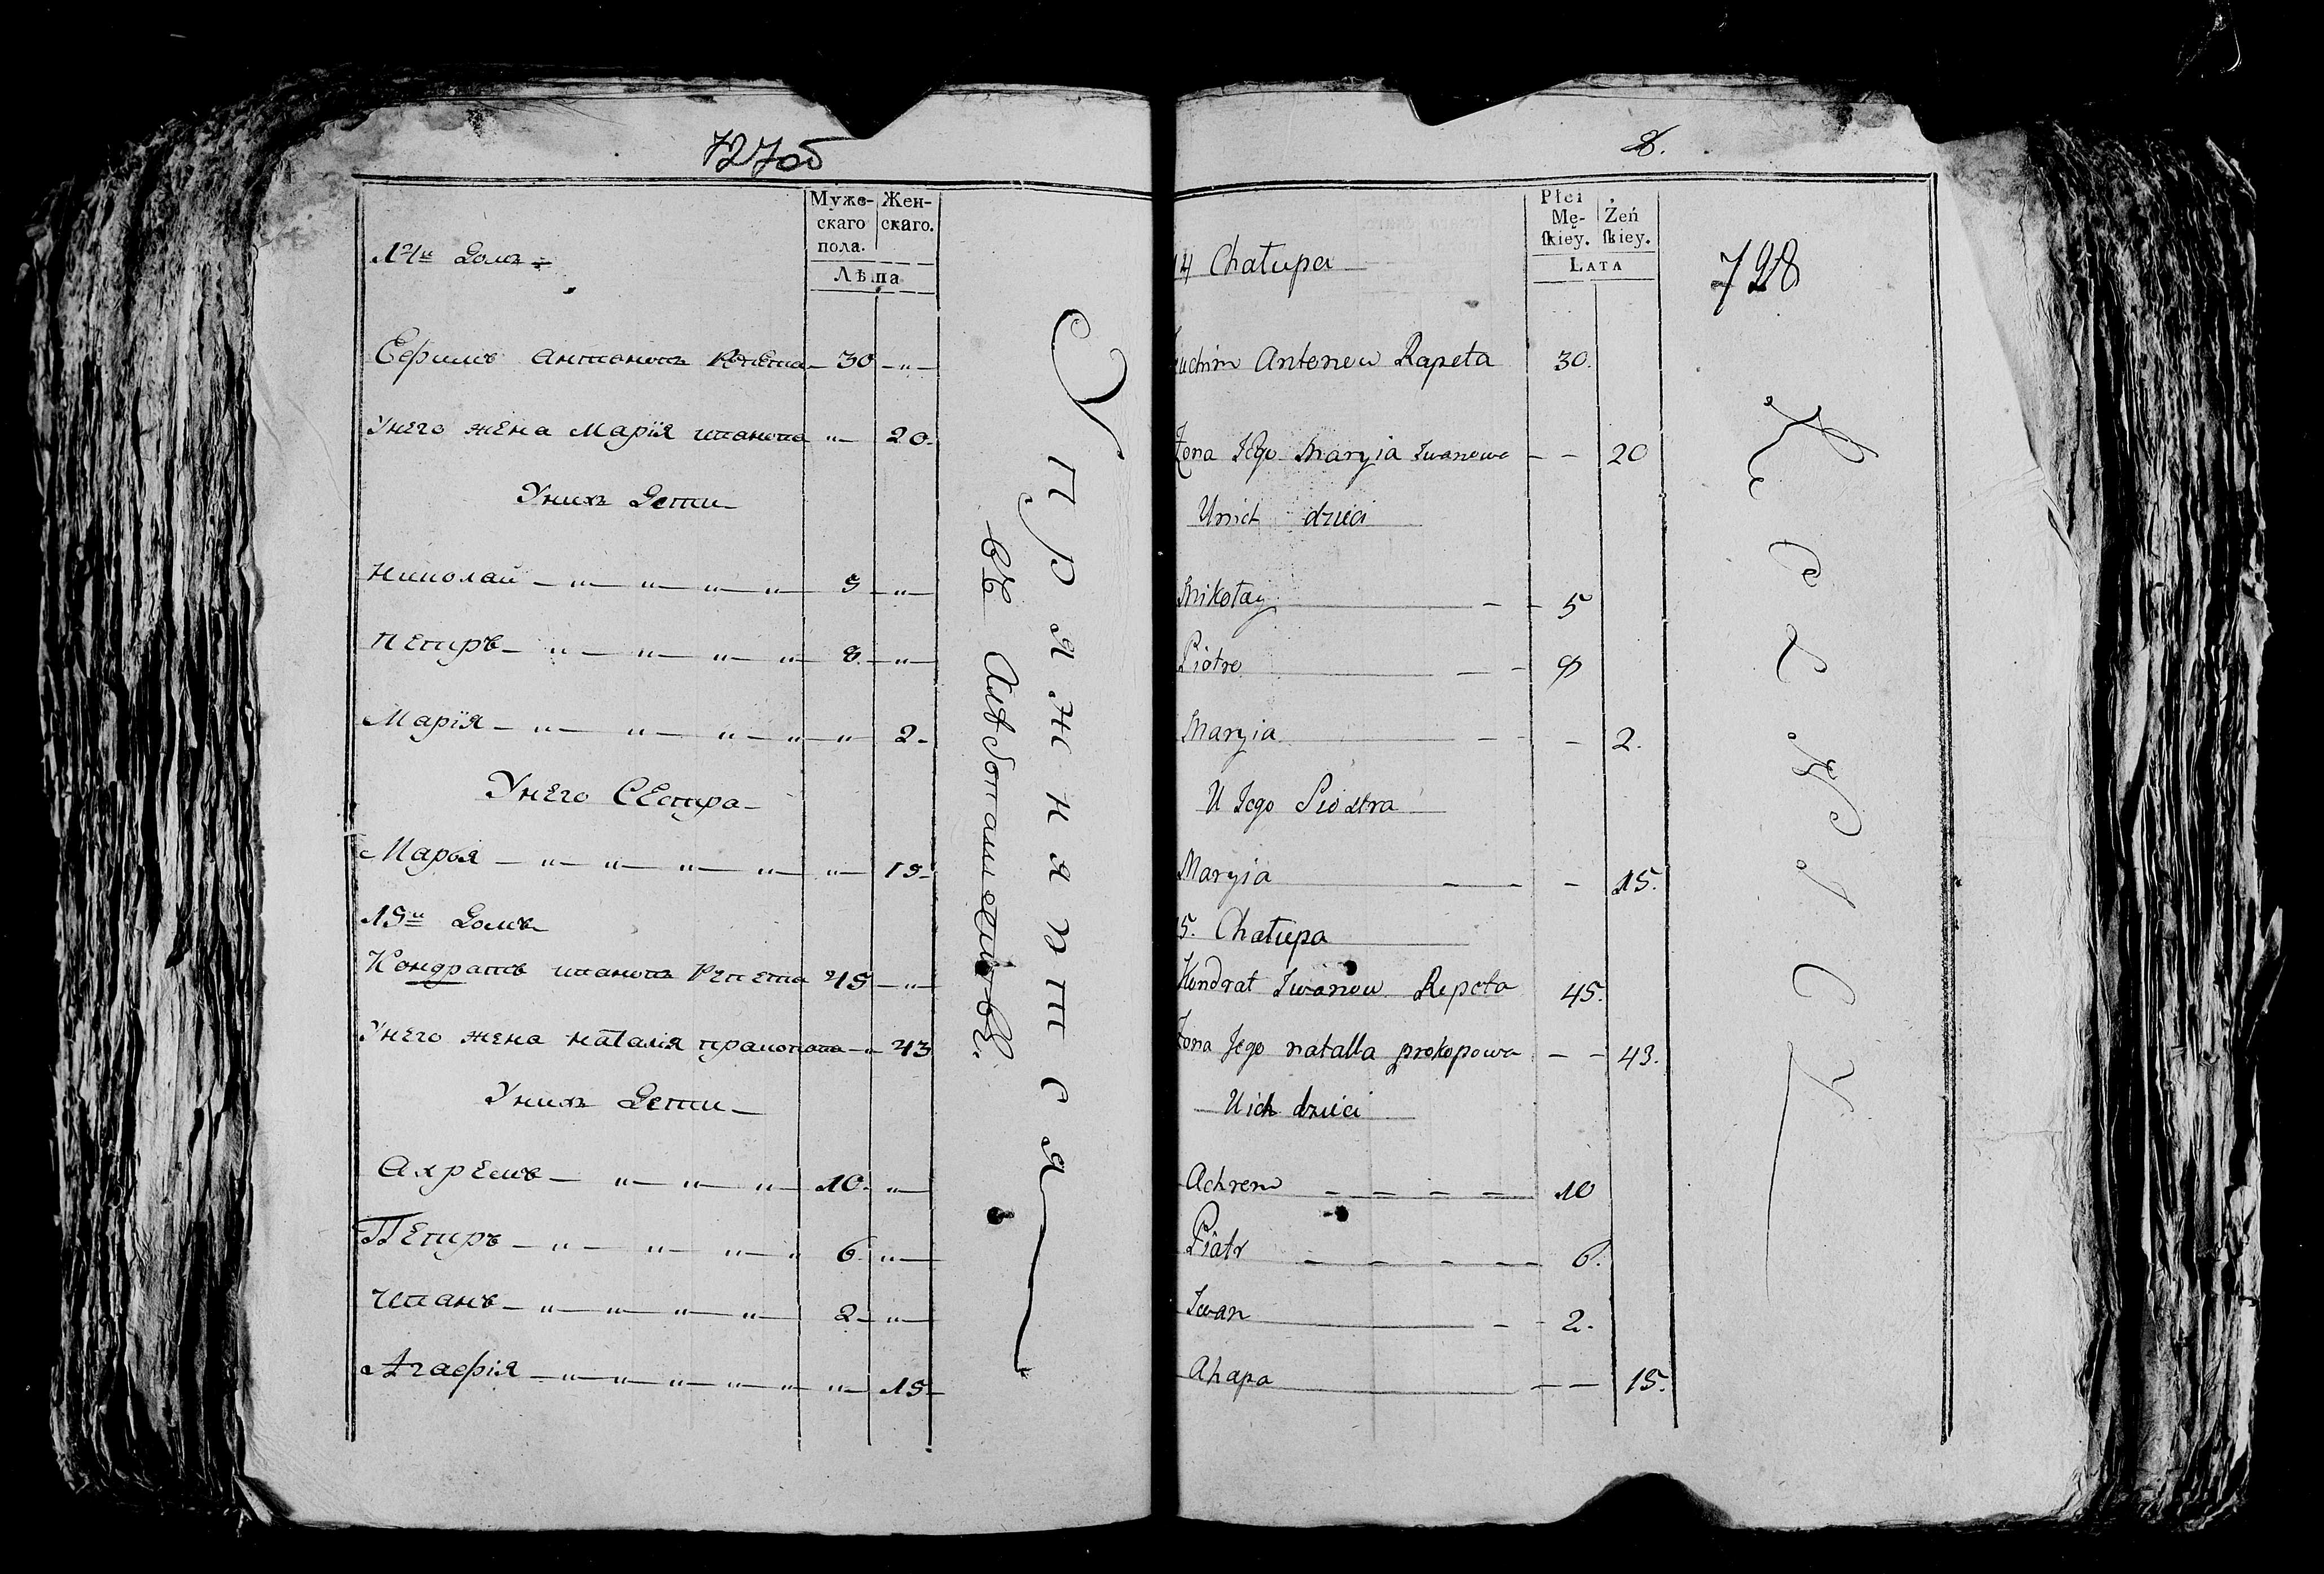 727об
Муже-
скаго
пола.
Жен-
скаго.
Лѣта
14й Домъ
Ефимъ антоновъ Репета 30 "
Унего жена Марїя иванова " 20
Унихъ Дети
Николай " " " " 5 "
Петръ " " " " 8 "
Марїя " " " " " 2
Унего Сестра
Марья " " " " " 15
15й Домъ
Кондратъ ивановъ Репета 45 "
Унего жена наталїя пракопова " 43
Унихъ Дети
Ахремъ " " " 10 "
Петръ " " " " 6 "
Иванъ " " " " 2 "
Агафїя " " " " " " 15
Упражняются
въ хлѣбопашествѣ.
8.
728
Płci
Mę-
skiey.
Żeń
skiey.
LATA
14 Chałupa
Juchim Antonow Rapeta 30.
Żona Jego Maryia Iwanowa - - 20
Unich dzieci
Mikołay - - 5
Piotro - - 8
Maryia - - - 2.
U Jego Siostra
Maryia - - - 15.
15. Chałupa
Kondrat Iwanow Repeta 45.
Żona Jego natalla prokopowa - - 43.
U ich dzieci
Achrem - - - - 10
Piatr - - - - - 6.
Iwan - - 2.
Ahapa - - 15.